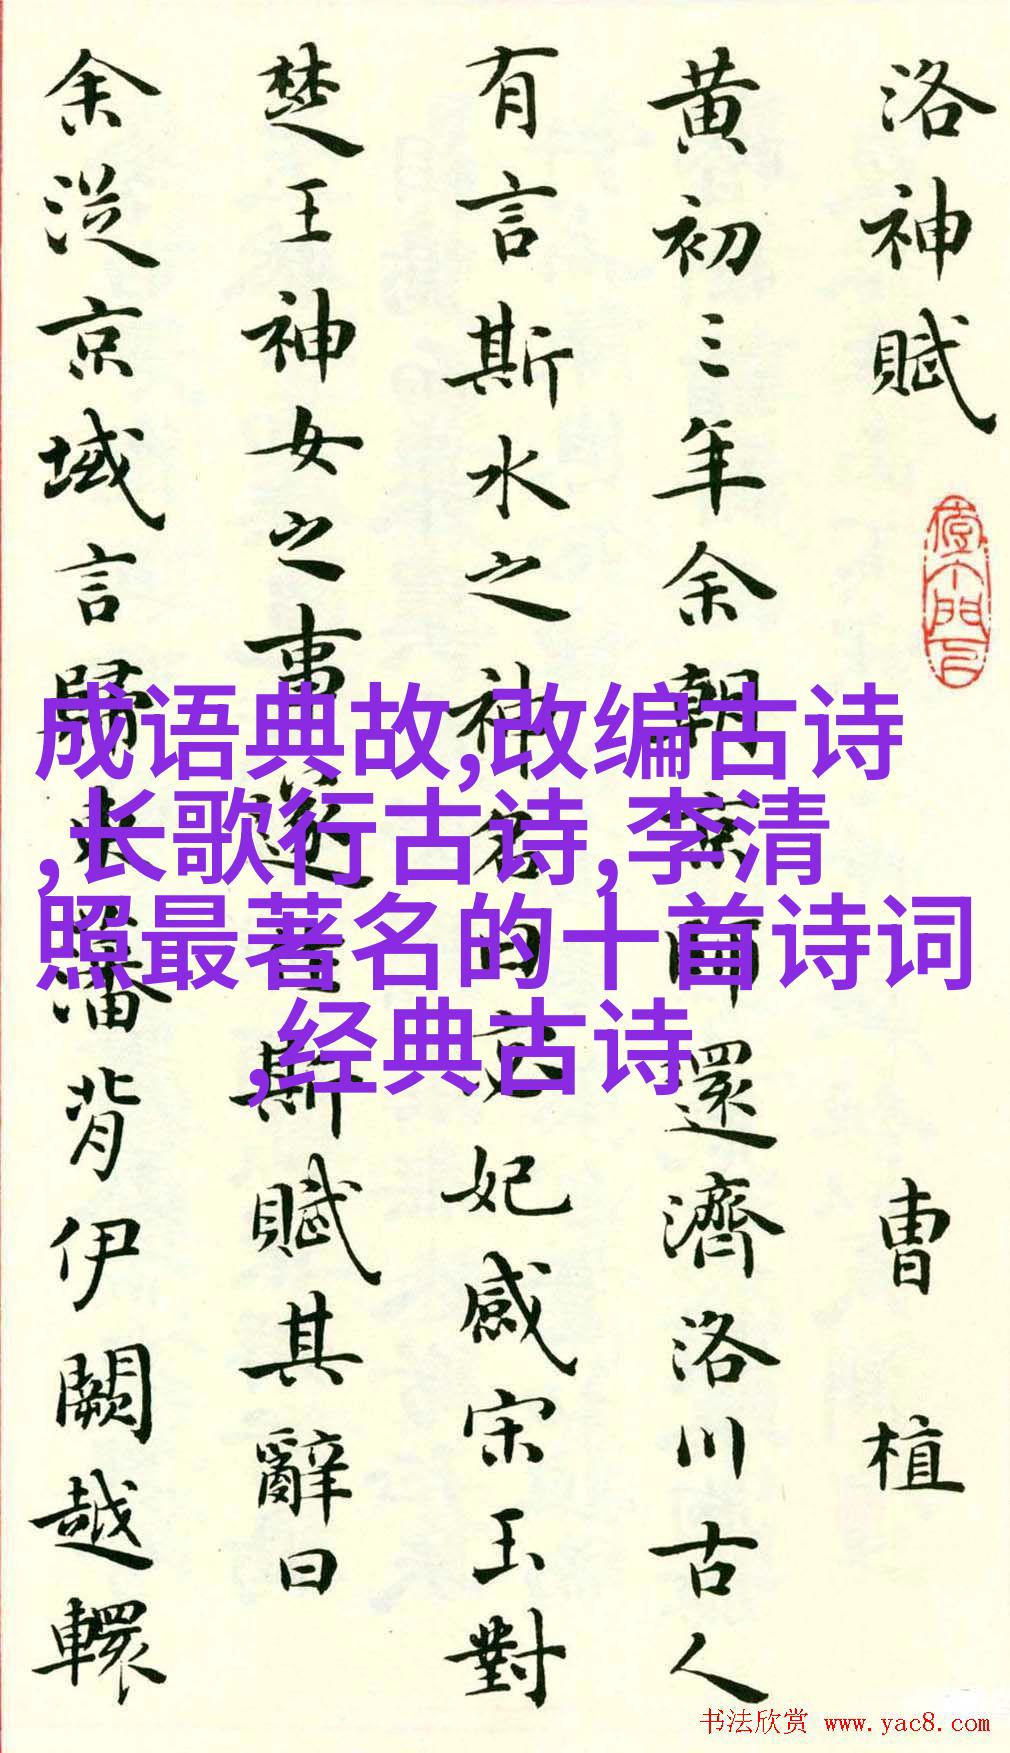 洛神賦
曹植
黄初三年余朝京師還濟洛川古人
有言斯水之神名曰宓妃感宋玉對
楚王神女之事遂作斯賦其辭曰
余從京域言歸東藩背伊闕越轘
成语典故,改编古诗
,长歌行古诗,李清
照最著名的十首诗词
,经典古诗
书法欣赏 www.yac8.com